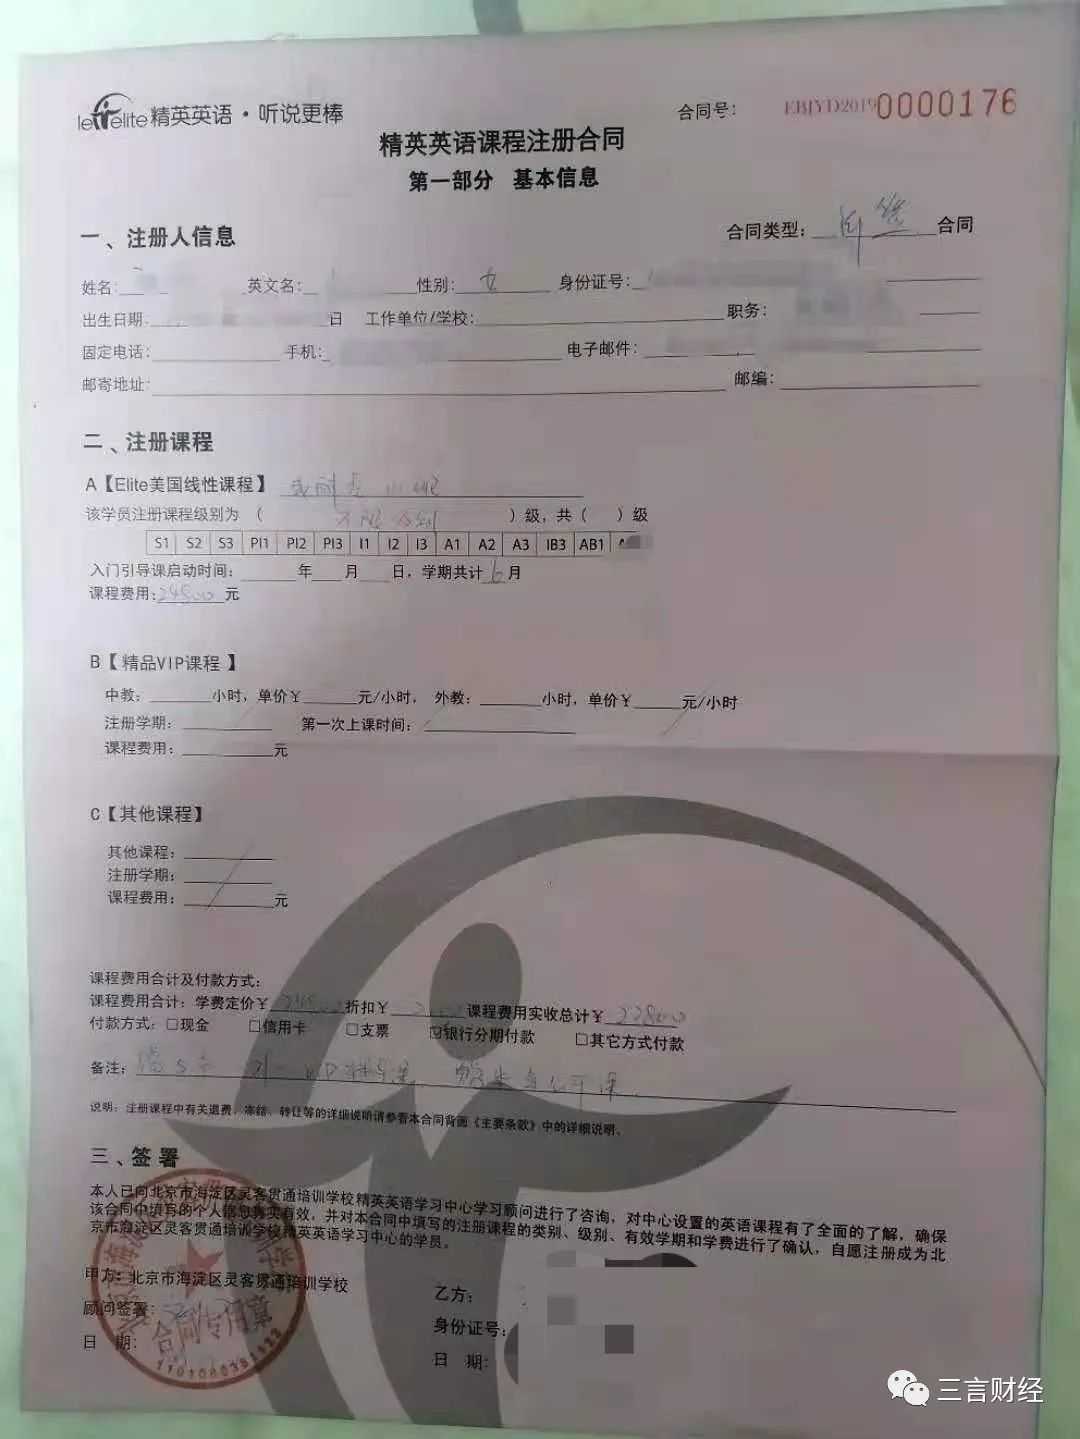 letelite精英英语·听说更棒
合同号: EBJYD20190000176
精英英语课程注册合同
第一部分 基本信息
一、注册人信息
合同类型: 合同
姓名: 英文名: 性别: 女 身份证号:
出生日期 日 工作单位/学校: 职务:
固定电话: 手机: 电子邮件:
邮寄地址: 邮编:
二、注册课程
A【Elite美国线性课程】
该学员注册课程级别为 ( 不限级别 )级,共( )级
S1 S2 S3 PI1 PI2 PI3 I1 I2 I3 A1 A2 A3 IB3 AB1
入门引导课启动时间: 年 月 日,学期共计 6 月
课程费用: 24800 元
B【精品VIP课程】
中教: 小时,单价¥ 元/小时, 外教: 小时,单价¥ 元/小时
注册学期: 第一次上课时间:
课程费用: 元
C【其他课程】
其他课程:
注册学期:
课程费用: 元
课程费用合计及付款方式:
课程费用合计: 学费定价¥ 24800 折扣¥ 课程费用实收总计¥ 22800
付款方式: □现金 □信用卡 □支票 ☑银行分期付款 □其它方式付款
备注:
说明: 注册课程中有关退费、冻结、转让等的详细说明请参看本合同背面《主要条款》中的详细说明。
三、签署
本人已向北京市海淀区灵客贯通培训学校精英英语学习中心学习顾问进行了咨询,对中心设置的英语课程有了全面的了解,确保
该合同中填写的个人信息真实有效,并对本合同中填写的注册课程的类别、级别、有效学期和学费进行了确认,自愿注册成为北
京市海淀区灵客贯通培训学校精英英语学习中心的学员。
甲方: 北京市海淀区灵客贯通培训学校
乙方:
顾问签署:
身份证号:
日 期:
日 期:
合同专用章
三言财经